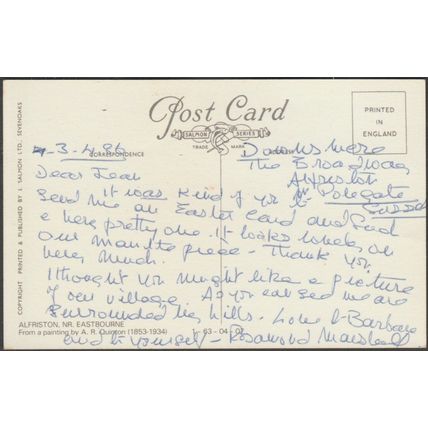 Post Card
SALMON SERIES
TRADE MARK
PRINTED IN ENGLAND
CORRESPONDENCE
3.4.86
The Broadway
Alfriston
Nr Polegate
Sussex
Dear Jean
It was kind of yr
send me an Easter Card and such
a very pretty one. it looks lovely on
our mantle piece - Thank you
very much.
I thought you might like a picture
of our village. As you can see we are
surrounded by hills. Love to Barbara
and to yourself - Rosamond
COPYRIGHT PRINTED & PUBLISHED BY J. SALMON LTD., SEVENOAKS
ALFRISTON, NR. EASTBOURNE
From a painting by A. R. Quinton (1853-1934)
1-63-04-07